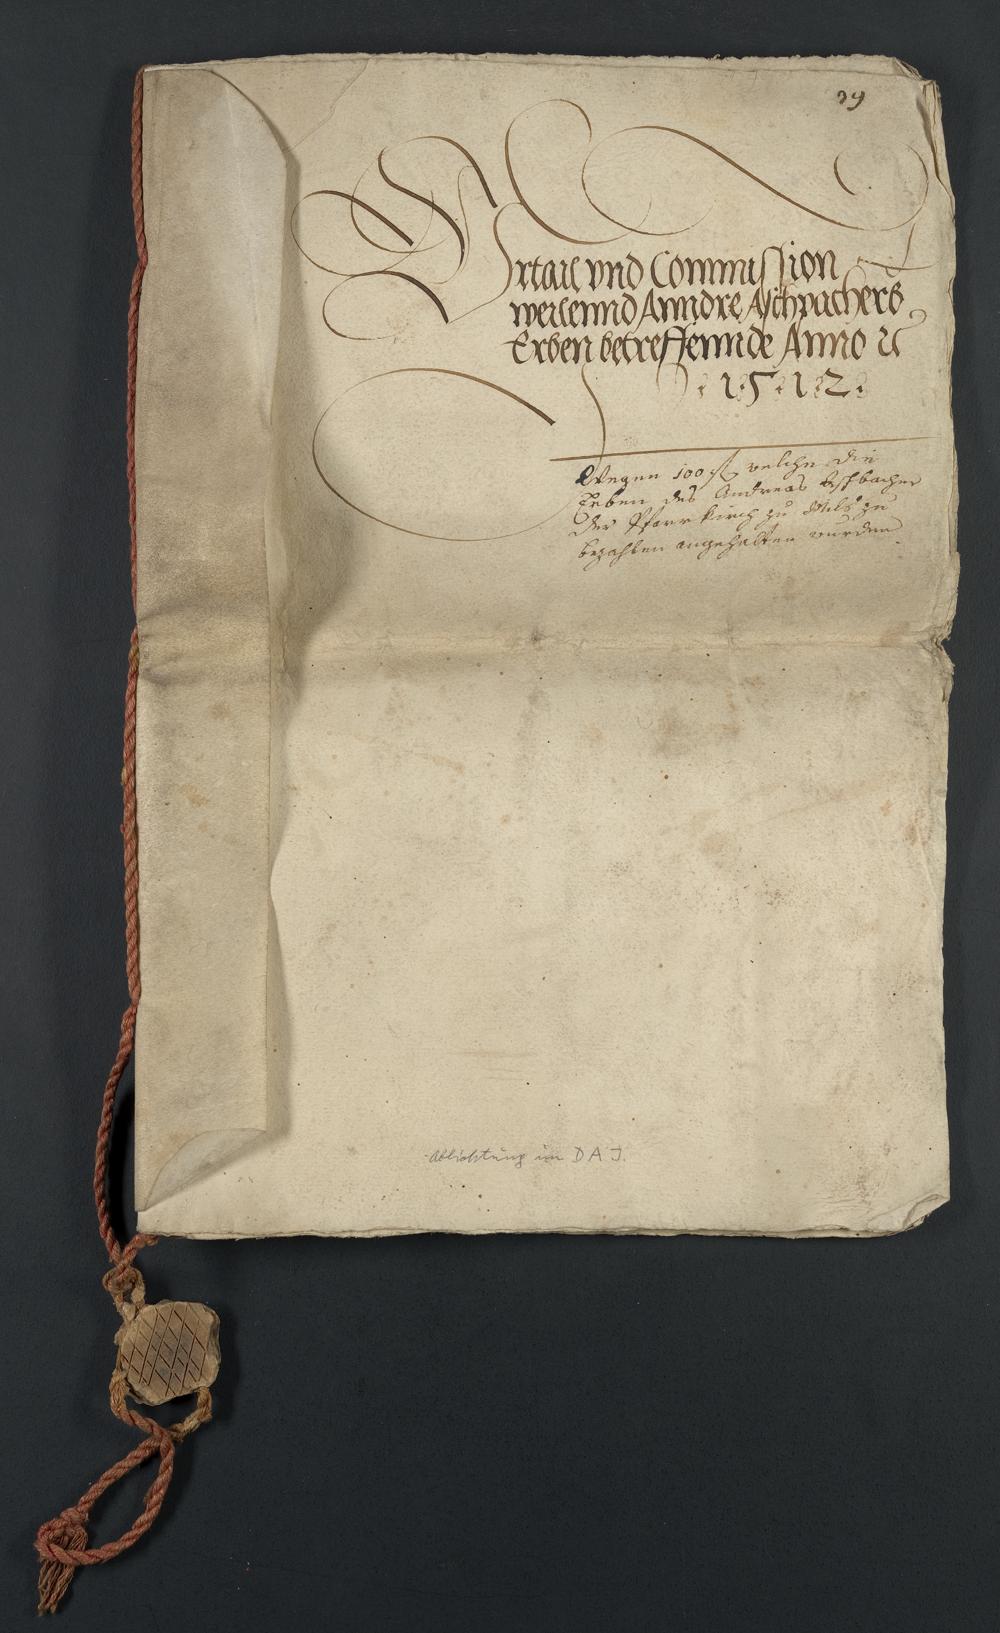 39
Vrtail vnd Commission
weilennd Anndre Aschpachers
Erben betreffennde Anno ꝛc
· 1 · 5 · 1 · 2 ·
Wegen 100 fl welche die
Erben des Andreas Eschbacher
der Pfarrkirch zu Mils zu
bezahlen angehalten wurden.
Ablichtung im DAJ.